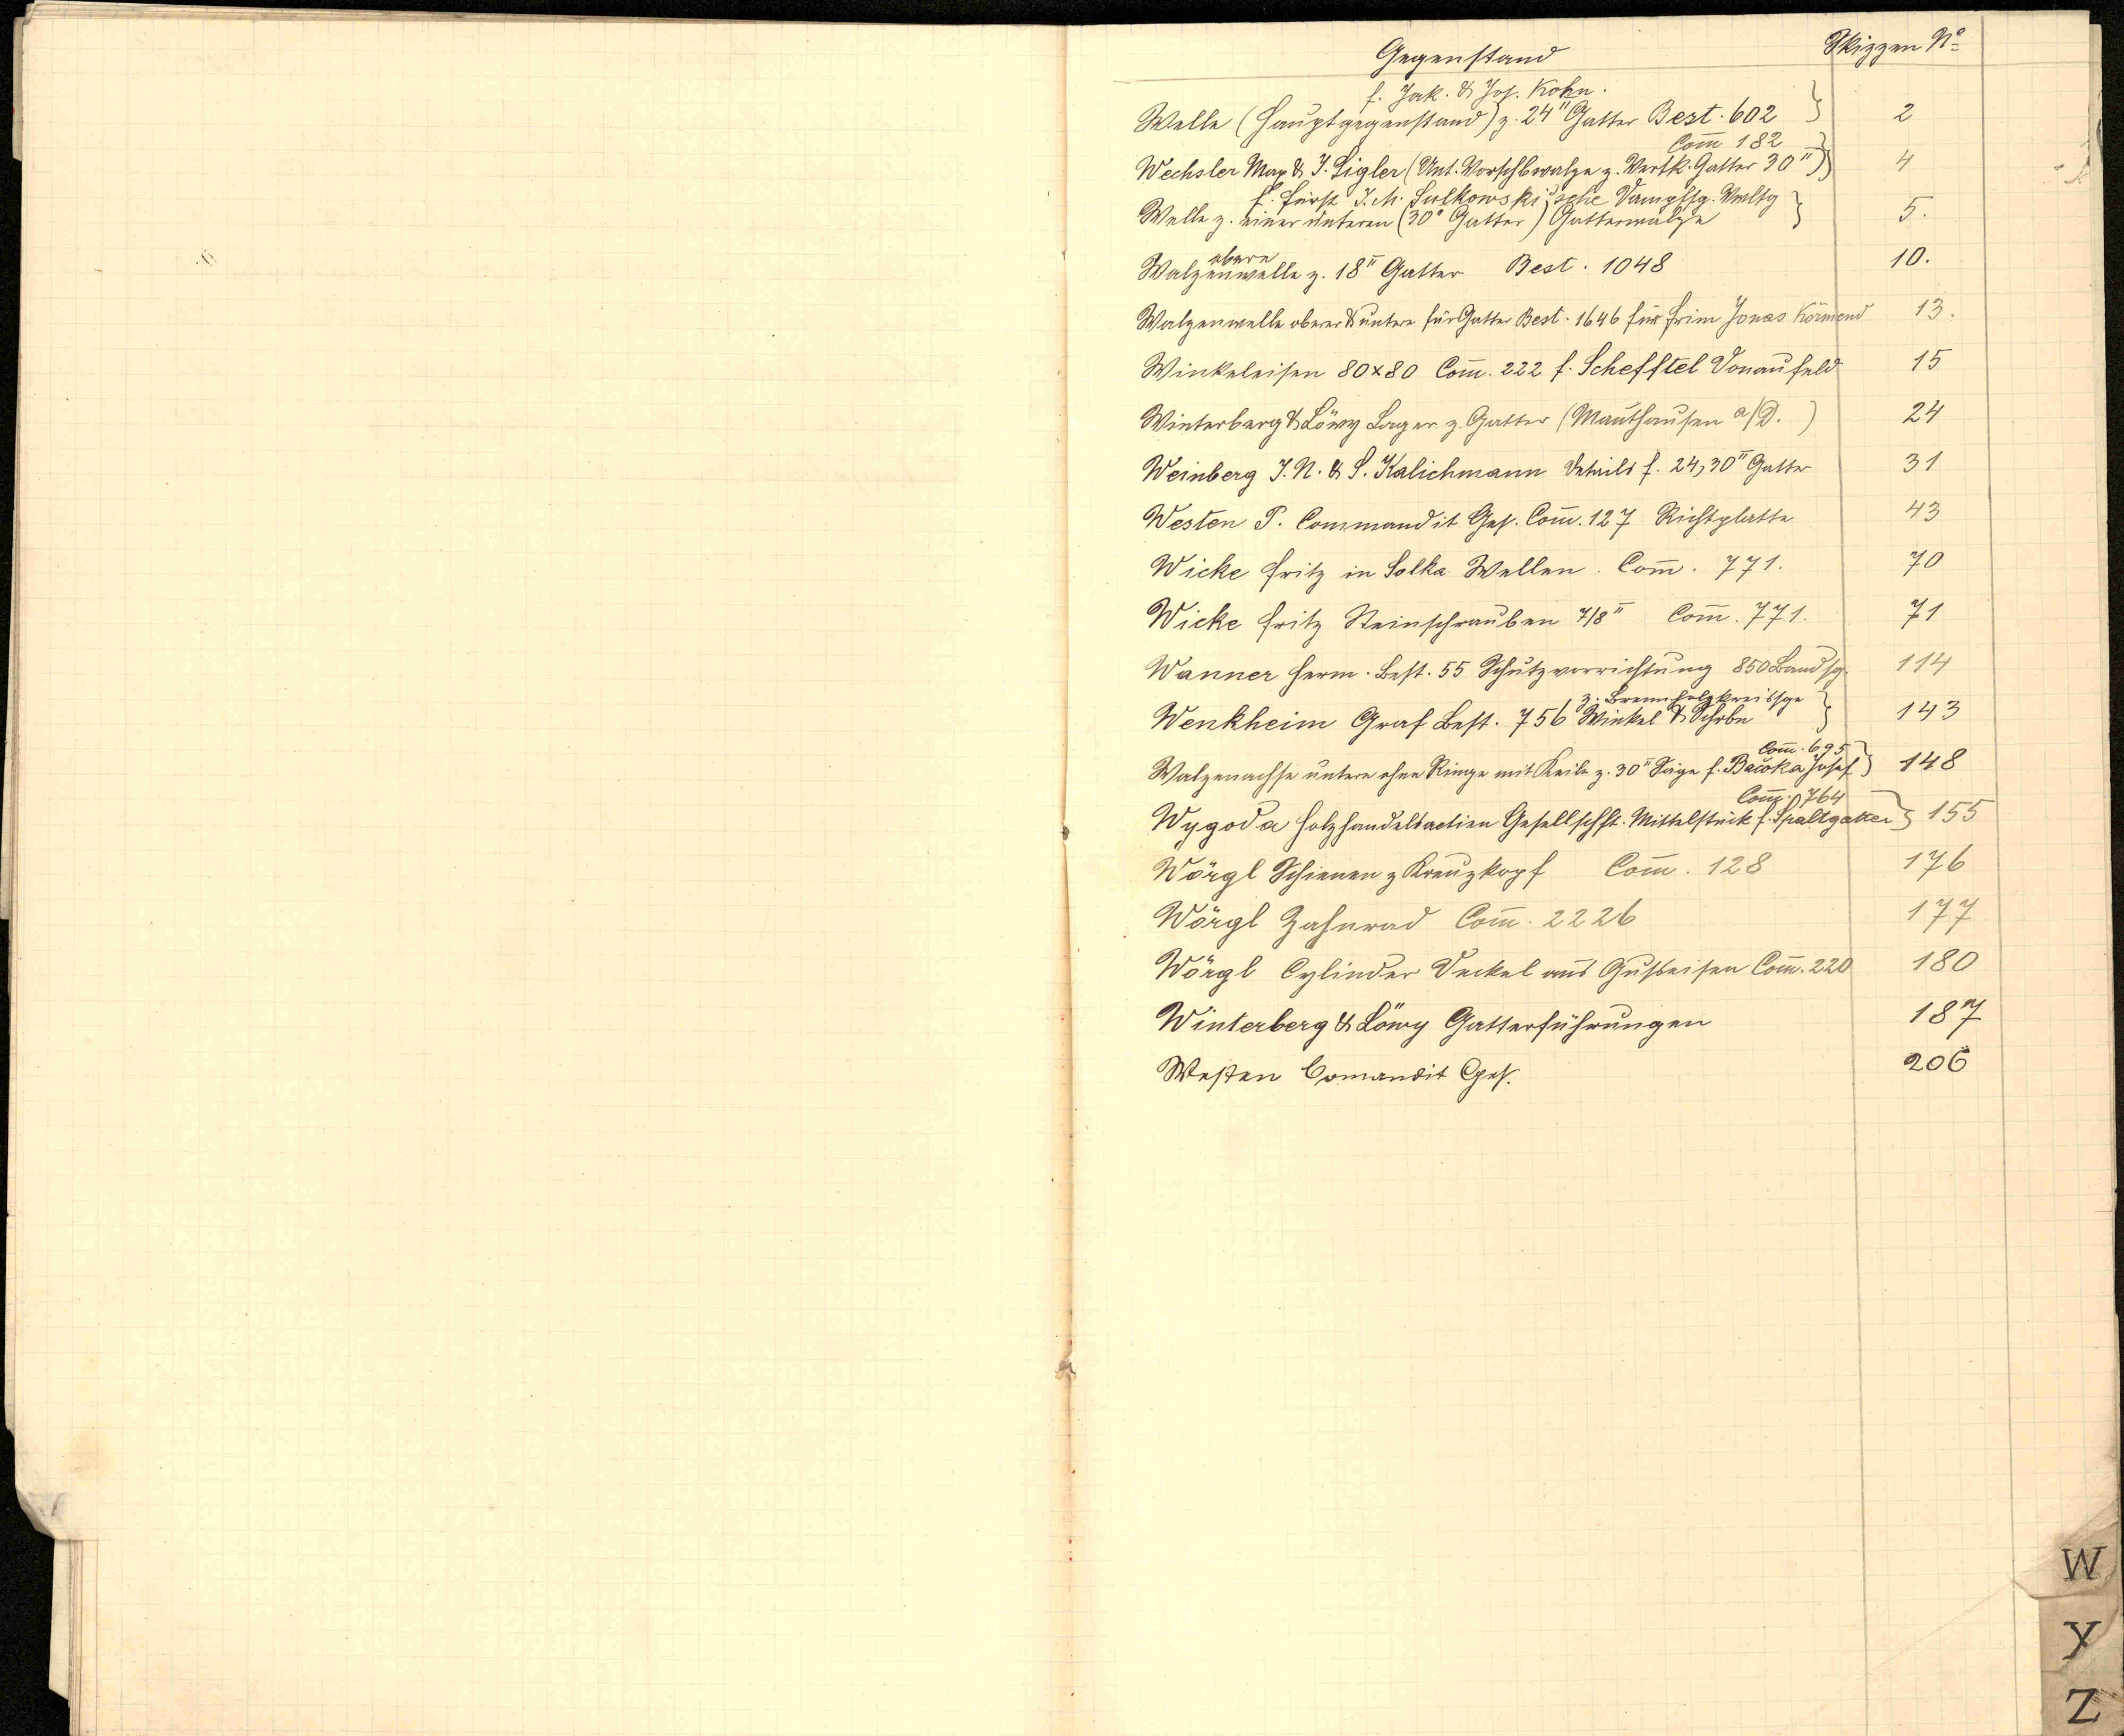 Gegenstand Skizzen Nº
f. Jak. & Jos. Kohn.
Welle (Hauptgegenstand) z. 24" Gatter Best. 602 2
Com̅ 182
Wechsler Max & J. Sigler (Unt. Vorschbwalze z. Vertk. Gatter 30") 4
f. Fürst J. M. Sulkowski'sche Dampfsg. Vwltg
Welle z. einer unteren (30" Gatter) Gatterwalze 5.
obere
Walzenwelle z. 18" Gatter Best. 1048 10.
Walzenwelle oberer & untere für Gatter Best. 1646 für Frim Jonas Körmend 13.
Winkeleisen 80x80 Com̅. 222 f. Schefftel Donaufeld 15
Winterberg & Löwy Lager z. Gatter (Mauthausen a/D.) 24
Weinberg J. N. & S. Kalichmann Details f. 24, 30" Gatter 31
Westen P. Commandit Ges. Com̅. 127 Richtplatte 43
Wicke Fritz in Solka Wellen. Com̅. 771. 70
Wicke Fritz Steinschrauben 7/8" Com̅. 771. 71
Wanner Herm. Best. 55 Schutzvorrichtung 850 Bandsg. 114
z. Brennholzkreissge
Wenkheim Graf Best. 756 Winkel & Schrbn 143
Com̅. 695
Walzenachse untere ohne Ringe mit Keile z. 30" Säge f. Bačoka Josef 148
Com̅. 764
Wygoda Holzhandelsactien Gesellschft. Mittelstück f. Spaltgatter 155
Wörgl Schienen z Kreuzkopf Com̅. 128 176
Wörgl Zahnrad Com̅. 2226 177
Wörgl Cylinder Deckel aus Gußeisen Com̅. 220 180
Winterberg & Löwy Gatterführungen 187
Westen Comandit Ges. 206
W
Y
Z